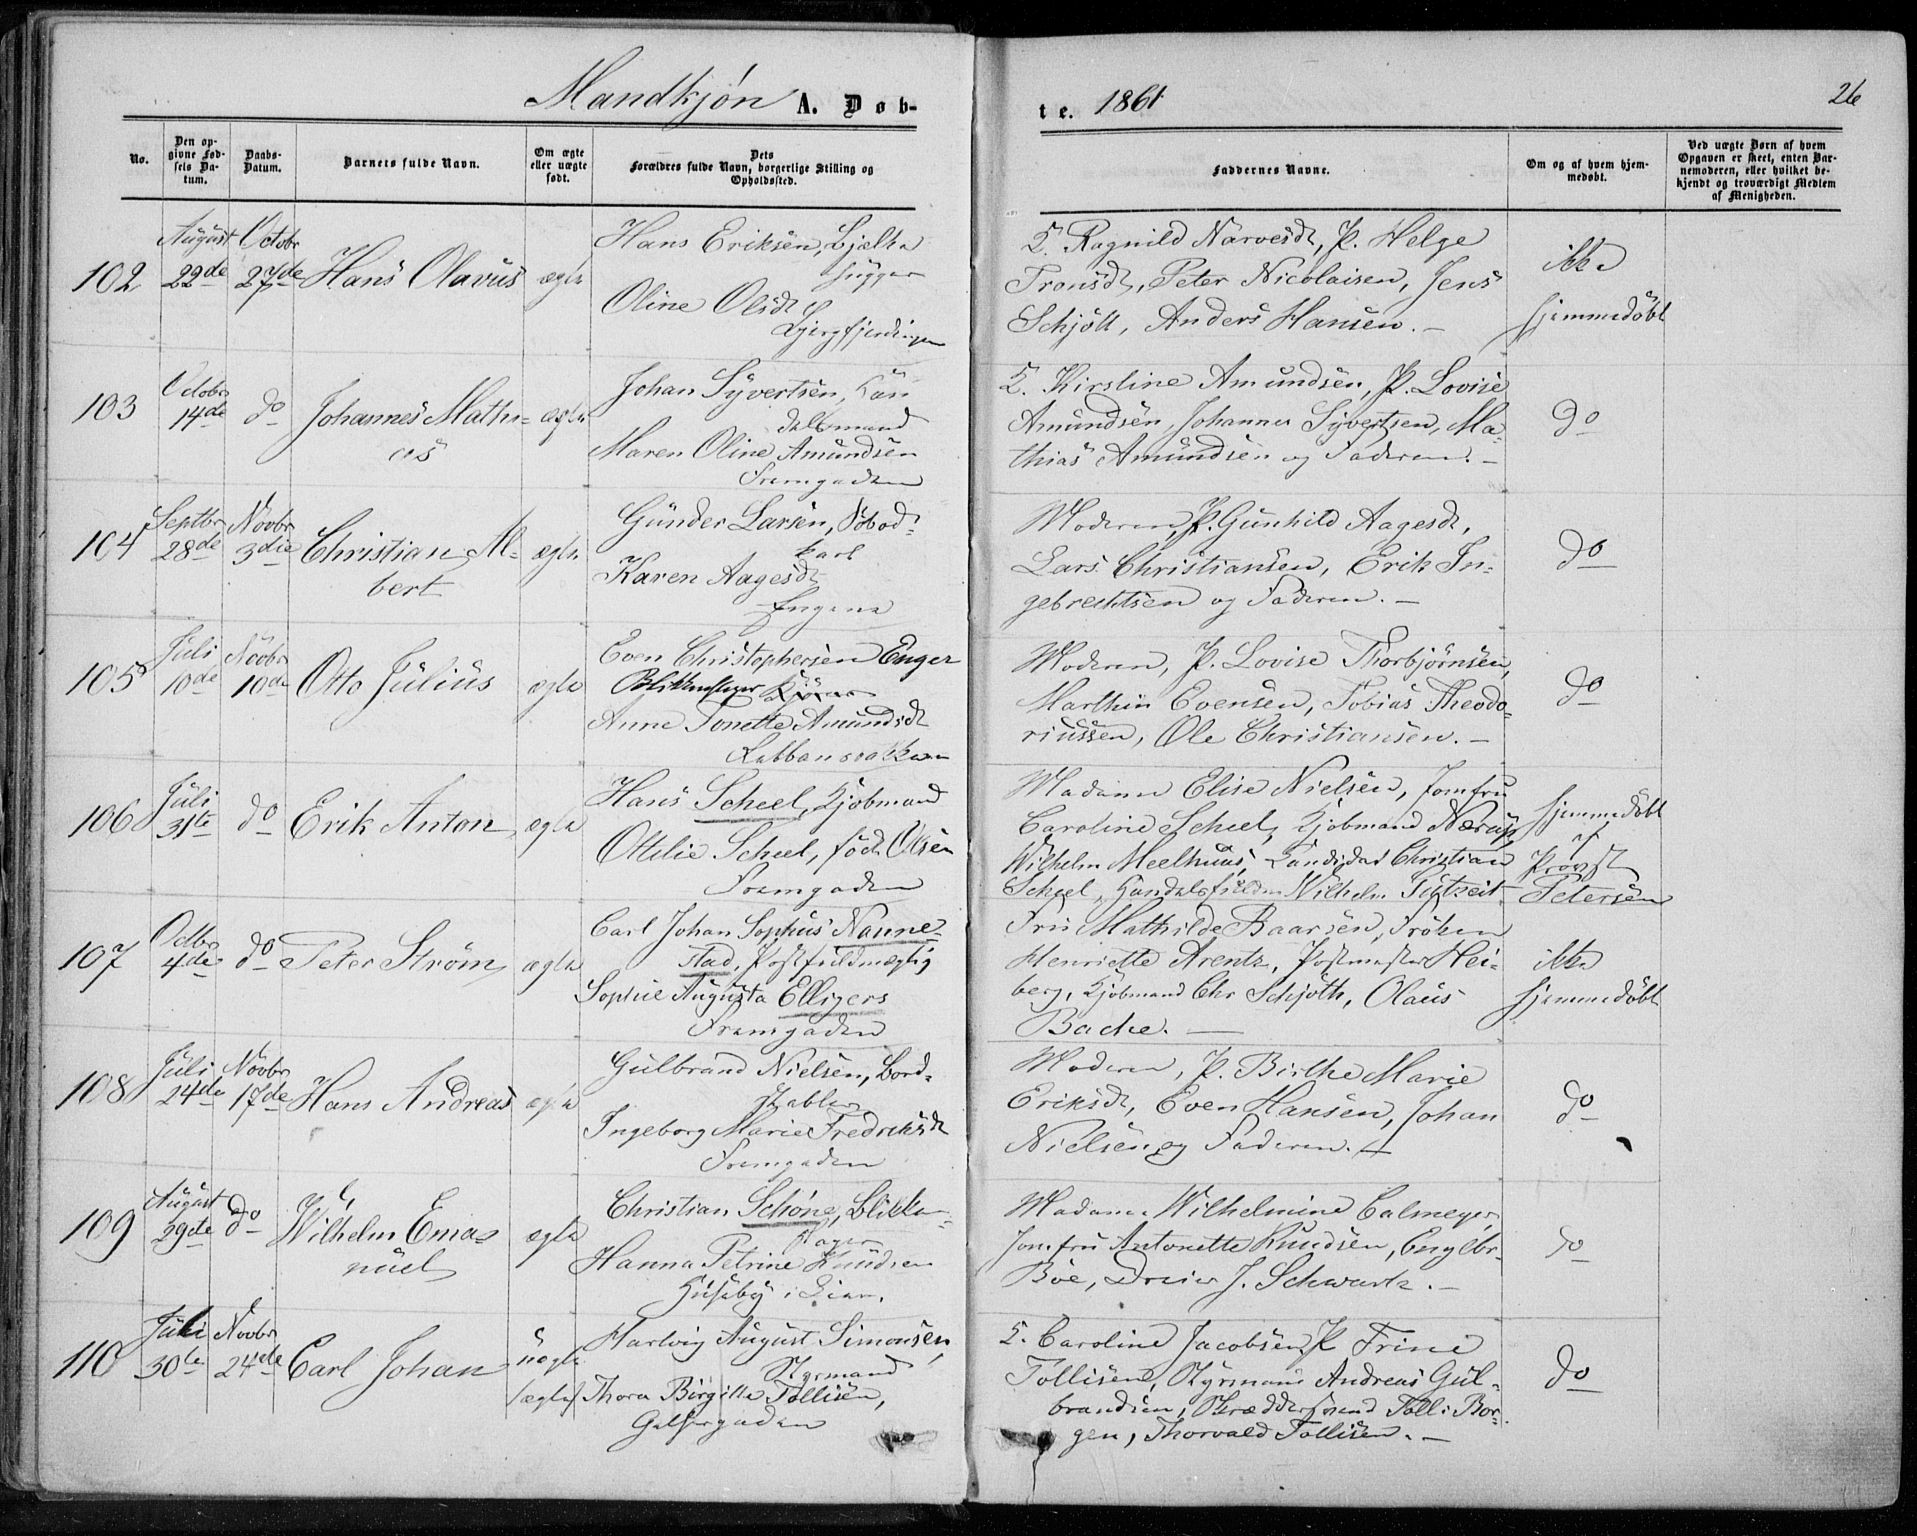 Mandkjøn A. Døb-
te. 1861
26
No.
Den op-
givne Fød-
sels Da-
tum.
Daabs-
Datum.
Barnets fulde Navn.
Om ægte
eller uægte
født.
Dets
Forældres fulde Navn, borgerlige Stilling og
Opholdssted.
Faddernes Navne.
Om og af hvem hjem-
medøbt.
Ved uægte Børn af hvem
Opgaven er skeet, enten Bar-
nemoderen, eller hvilket be-
kjendt og troværdigt Medlem
af Menigheden.
102
August
22de
Octobr
27de
Hans Olavus
ægte
Hans Eriksen, Bjelke
hugger
Oline Olsdt
Ragnild Narvesdt, P. Helge
Tronsdt, Peter Nicolaisen, Jens
Schjøtt, Anders Hansen. –
ikke
hjemmedøbt
103
Octobr
14de
do
Johannes Mathi-
as
ægte
Johan Syvertsen,
Maren Oline Amundsen
Kirstine Amundsen, P. Lovise
Amundsen, Johannes Syvertsen, Ma-
thias Amundsen og Faderen. –
do
104
Septbr
28de
Novbr
3die
Christian Al-
bert
ægte
Gunder Larsen,
karl
Karen Aagesdt
Engene
Moderen, P. Gunhild Aagesdt,
Lars Christiansen, Erik In-
gebrechtsen og Faderen. –
do
105
Juli
10de
Novbr
10de
Otto Julius
ægte
Even Christophersen Enger
Blikkenslager
Anne Tonette Amundsdt
Moderen, P. Lovise Thorbjørnsen,
Marthin Evensen, Tobias Theodo-
riussen, Ole Christiansen. –
do
106
Juli
31te
do
Erik Anton
ægte
Hans Scheel, Kjøbmand
Ottilie Scheel, født Olsen
Madame Elise Nielsen, Jomfru
Caroline Scheel, Kjøbmand Nærup,
Wilhelm Meelhuus, Kandidat Christian
Scheel, Wilhelm
hjemmedøbt
af
Provst
Petersen
107
Octbr
4de
do
Peter Strøm
ægte
Carl Johan Sophus Nanne-
stad, Postfuldmægtig
Sophie Augusta Elligers
Fru Mathilde Baarsen, Frøken
Henriette Arentz, Postmester Hei-
berg, Kjøbmand Chr Schjøth, Olaus
Bache. –
ikke
hjemmedøbt
108
Juli
24de
Novbr
17de
Hans Andreas
ægte
Gulbrand Nielsen, Bord-
stabler
Ingeborg Marie Fredriksdt
Moderen, P. Birthe Marie
Eriksdt, Even Hansen, Johan
Nielsen og Faderen. –
do
109
August
29de
do
Wilhelm Ema-
nuel
ægte
Christian Schøne, Blikken-
slager
Hanna Petrine Knudsen
Huseby i Lier.
Madame Wilhelmine Calmeyer,
Jomfru Antonette Knudsen, Engebr.
Bøe, Dreier J. Schwartz. –
do
110
Juli
30te
Novbr
24de
Carl Johan
uægte
/ægte/
Hartvig August Simonsen,
Styrmand
Thora Birgitte Tollisen,
Caroline Jacobsen, P Trine
Tollisen, Styrmand Andreas Gul-
brandsen, Skræddersvend Tolli Bor-
gen, Thorvald Tollisen. –
do